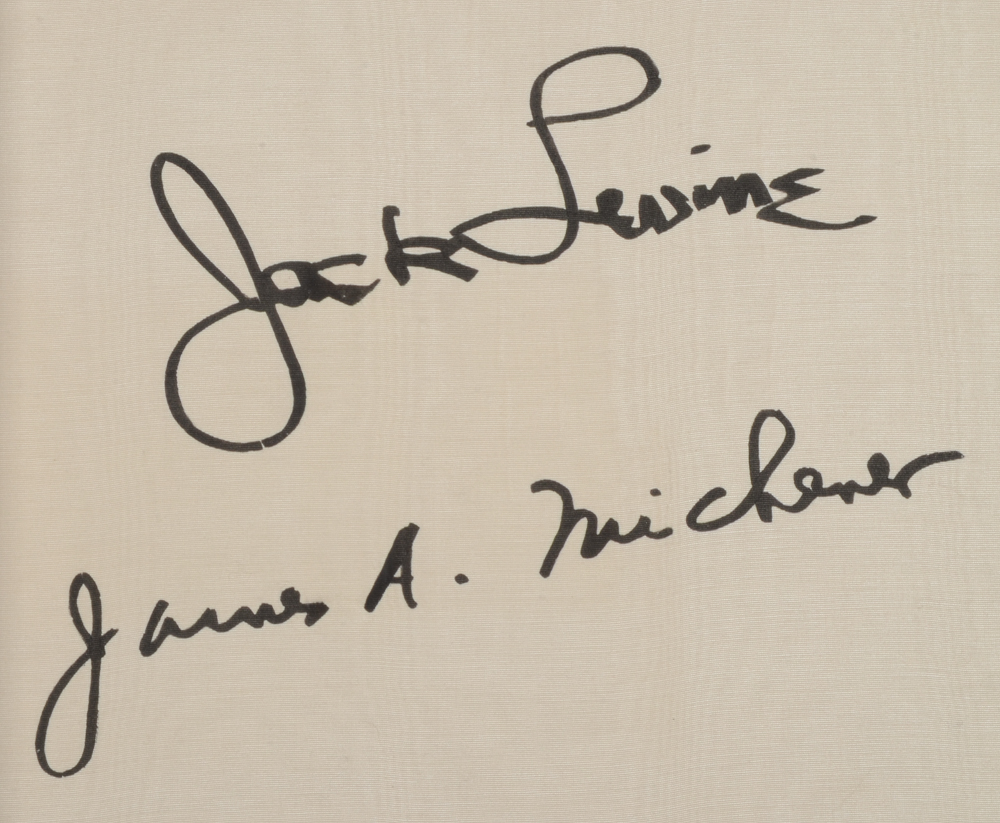 Jack Levine
James A. Michener